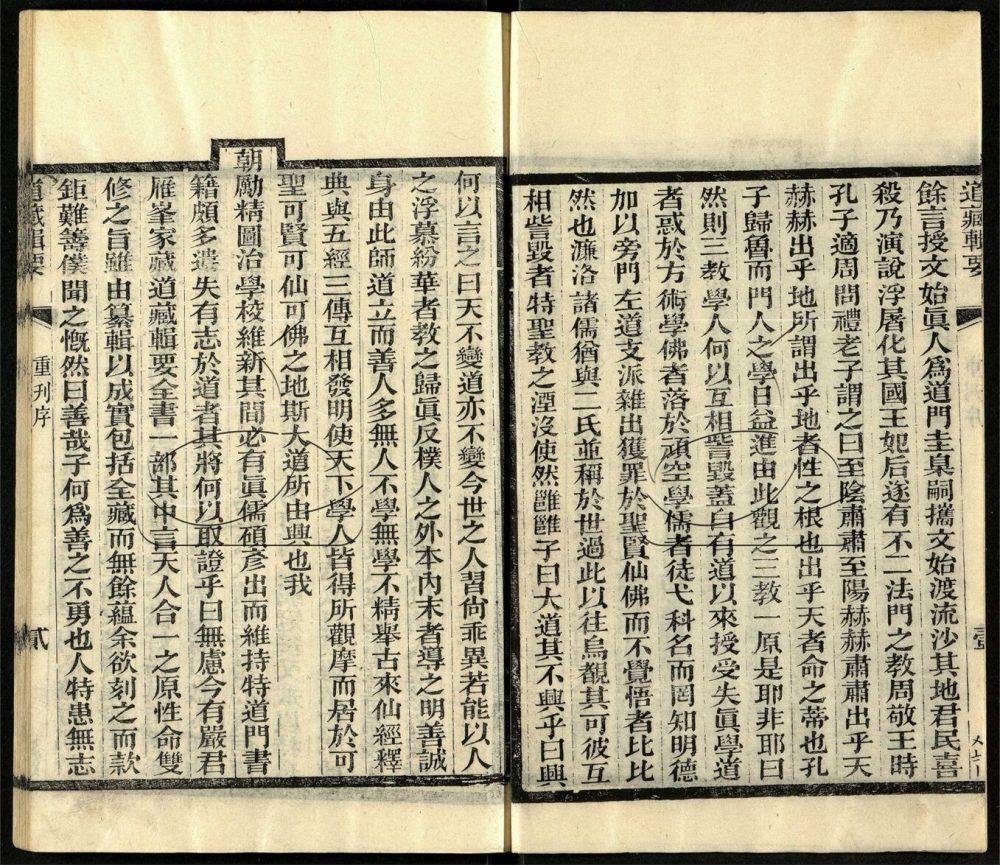 道藏輯要
壹
餘言授文始眞人爲道門圭臬嗣攜文始渡流沙其地君民喜
殺乃演說浮屠化其國王妃后遂有不二法門之教周敬王時
孔子適周問禮老子謂之曰至陰肅肅至陽赫赫肅肅出乎天
赫赫出乎地所謂出乎地者性之根也出乎天者命之蒂也孔
子歸魯而門人之學日益進由此觀之三教一原是耶非耶曰
然則三教學人何以互相訾毀蓋自有道以來授受失眞學道
者惑於方術學佛者落於頑空學儒者徒弋科名而罔知明德
加以旁門左道支派雜出獲罪於聖賢仙佛而不覺悟者比比
然也濂洛諸儒猶與二氏並稱於世過此以往烏覩其可彼互
相訾毀者特聖教之湮沒使然雝雝子曰大道其不興乎曰興
何以言之曰天不變道亦不變今世之人習尙乖異若能以人
之浮慕紛華者教之歸眞反樸人之外本內末者導之明善誠
身由此師道立而善人多無人不學無學不精舉古來仙經釋
典與五經三傳互相發明使天下學人皆得所觀摩而居於可
聖可賢可仙可佛之地斯大道所由興也我
朝勵精圖治學校維新其間必有眞儒碩彥出而維持特道門書
籍頗多遺失有志於道者其將何以取證乎曰無慮今有嚴君
雁峯家藏道藏輯要全書一部其中言天人合一之原性命雙
修之旨雖由纂輯以成實包括全藏而無餘蘊余欲刻之而款
鉅難籌僕聞之慨然曰善哉子何爲善之不勇也人特患無志
道藏輯要
重刊序
貳